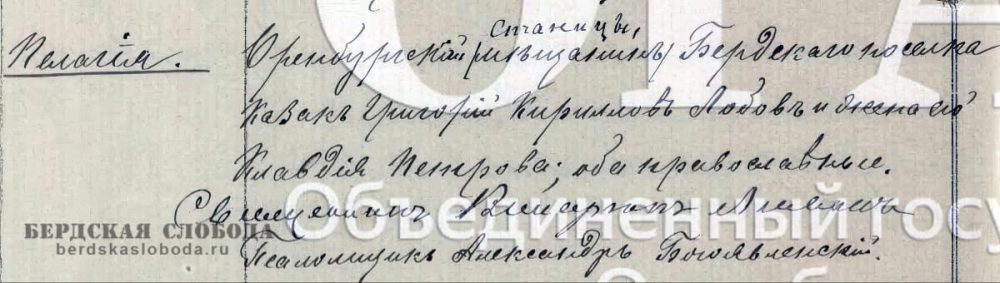 станицы,
Пелагія. Оренбургскій (мѣщанинъ) Бердскаго поселка
казакъ Григорій Кирилловъ Лобовъ и жена его
Клавдія Петрова; оба православные.
Священникъ
Псаломщикъ Александръ Богоявленскій.
БЕРДСКАЯ СЛОБОДА
berdskasloboda.ru
Объединенный госу